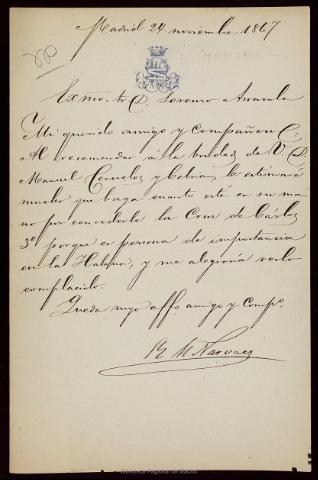 Madrid 24 noviembre 1867
Exmo. Sr. D. Lorenzo Arrazola
Mi querido amigo y compañero:
Al recomendar á la bondad de V. D.
Manuel y le estimaré
mucho que haga cuanto esté en su ma
no por concederle la Cruz de Cárlos
3º porque es persona de importancia
en la Habana, y me alegraria verlo
complacido.
Queda suyo affo. amigo y compº.
R M Narvaez
Biblioteca Regional de Madrid